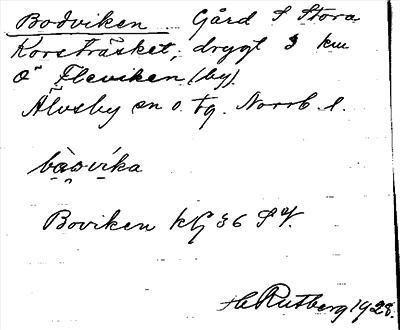 Bodviken Gård S Stora
Korsträsket, drygt 3 km
Ö Fleviken (by).
Älvsby sn o. tg. Norrb. l.
bo̯svíka
Boviken kG 36 S V.
H Rutberg 1928.